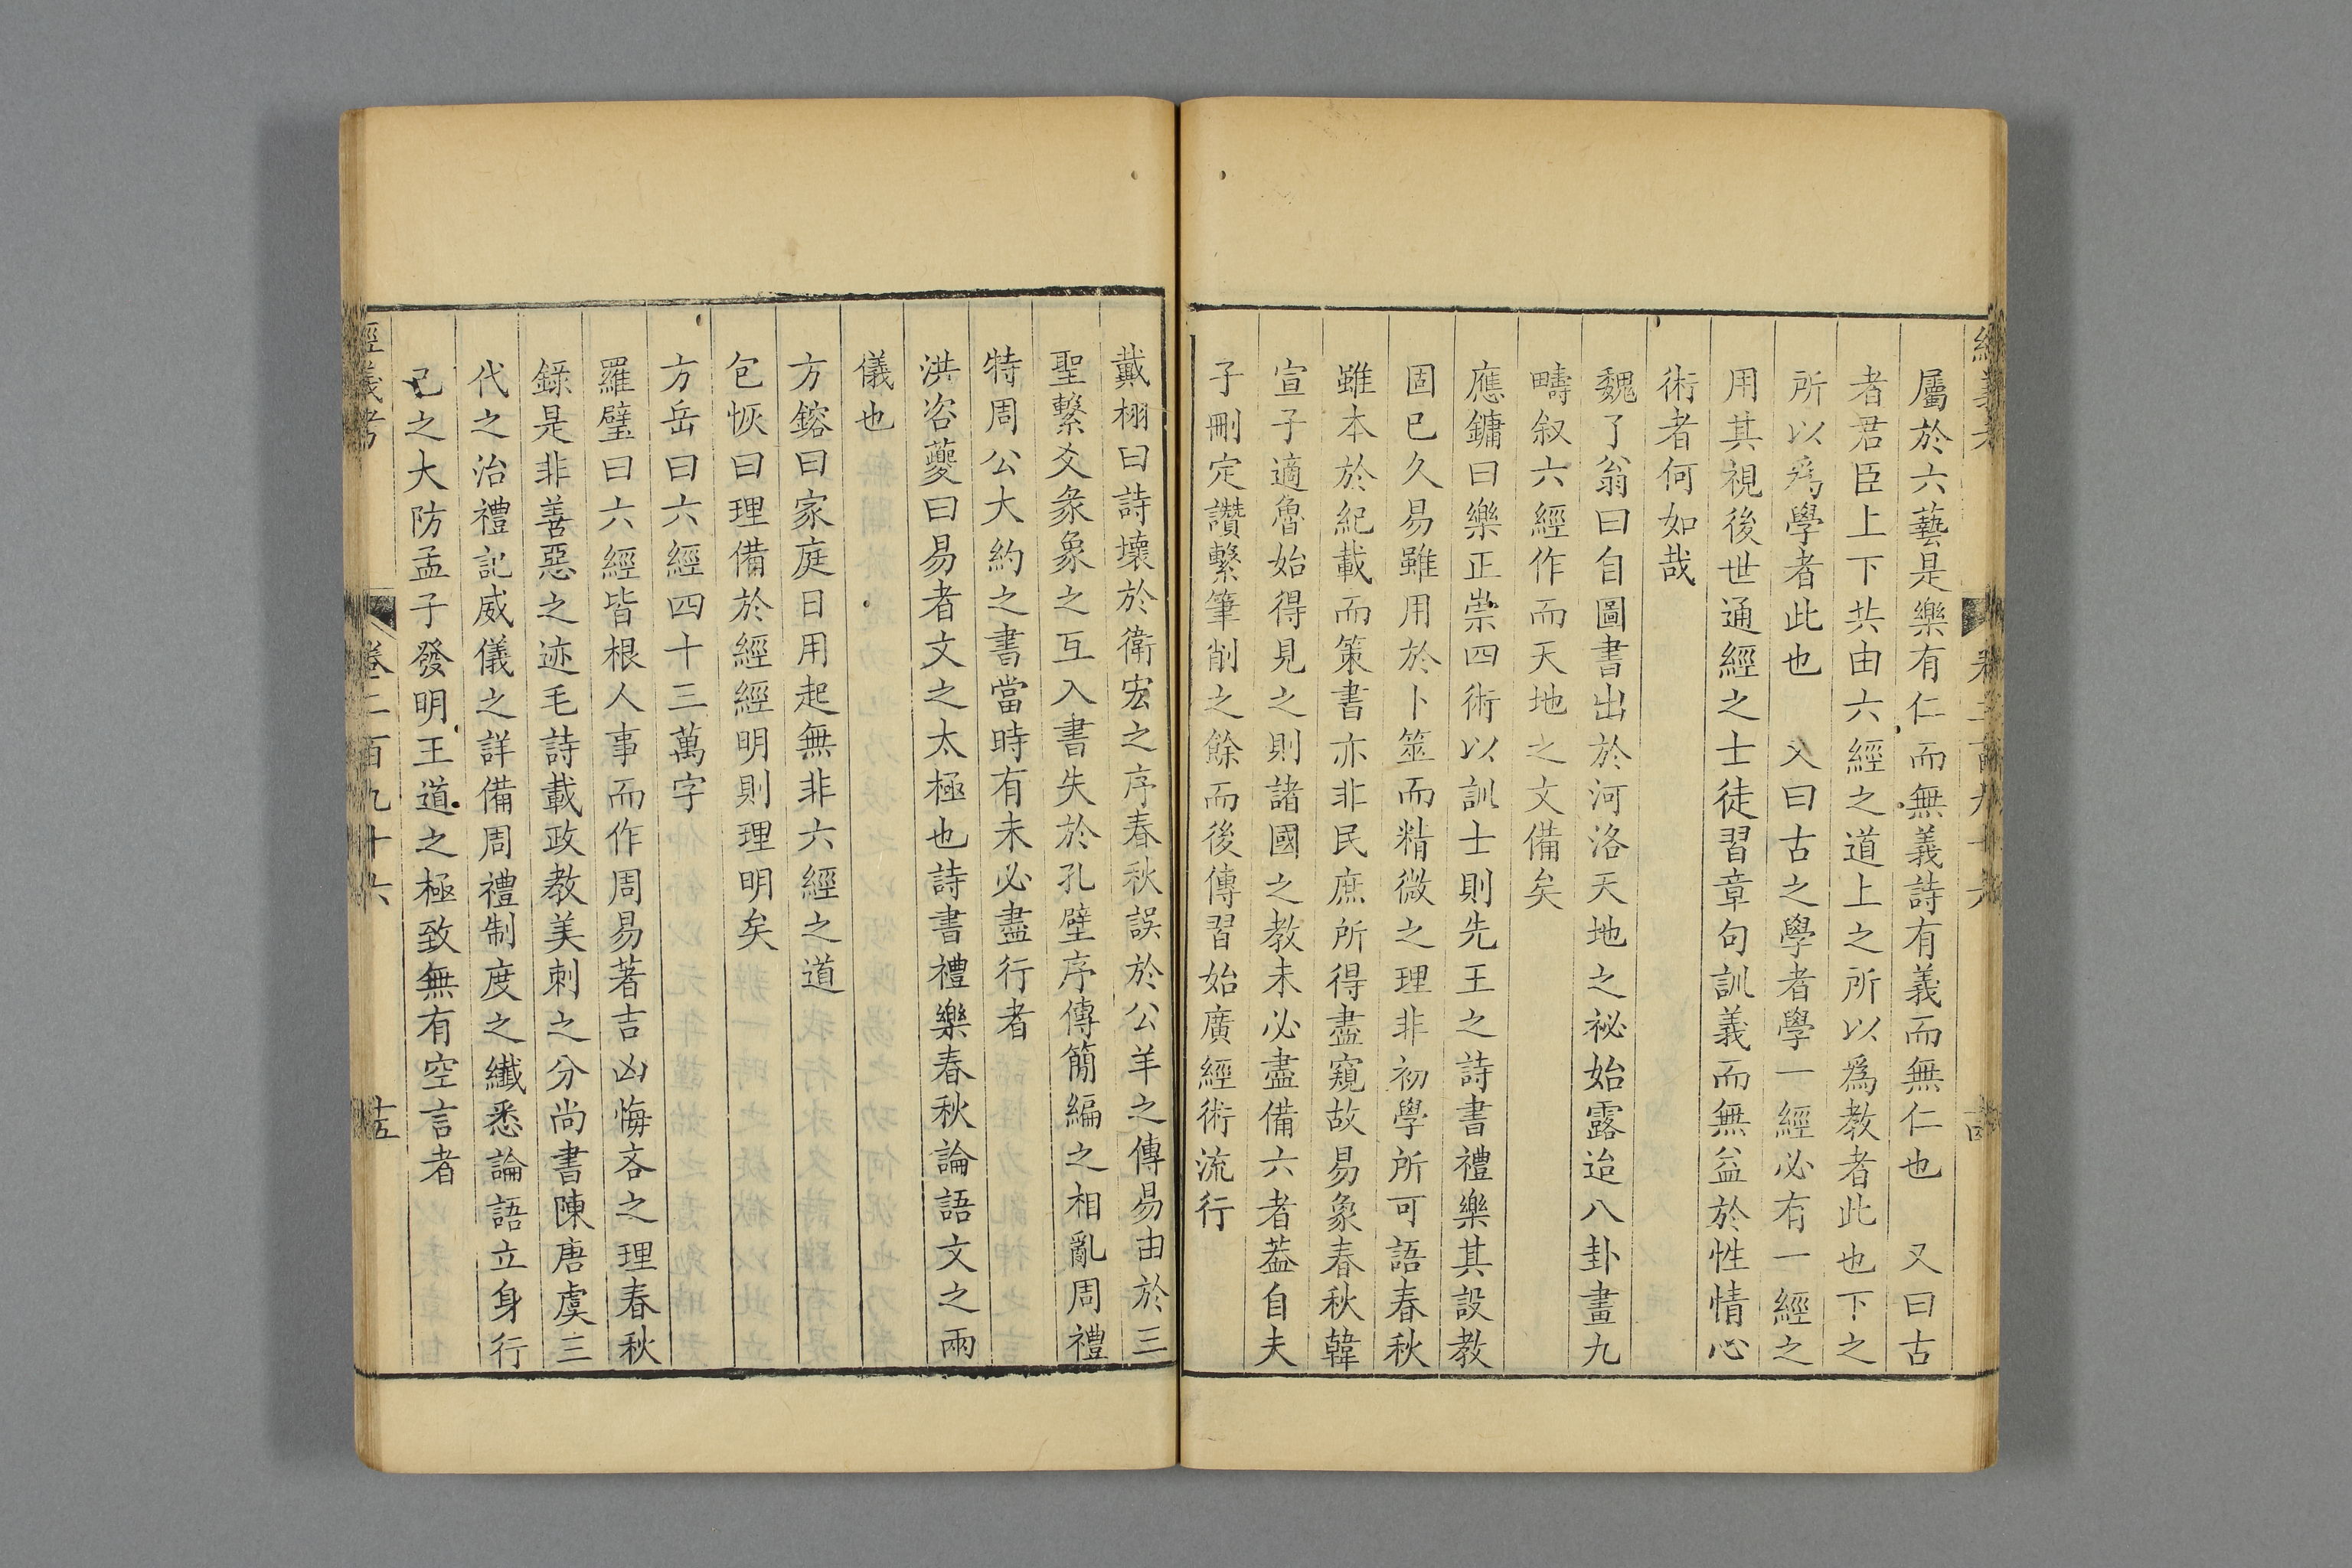 屬於六藝是樂有仁而無義詩有義而無仁也　又曰古
者君臣上下共由六經之道上之所以爲教者此也下之
所以爲學者此也　又曰古之學者學一經必有一經之
用其視後世通經之士徒習章句訓義而無益於性情心
術者何如哉
魏了翁曰自圖書出於河洛天地之祕始露迨八卦畫九
疇叙六經作而天地之文備矣
應鏞曰樂正崇四術以訓士則先王之詩書禮樂其設教
固已久易雖用於卜筮而精微之理非初學所可語春秋
雖本於紀載而策書亦非民庶所得盡窺故易象春秋韓
宣子適魯始得見之則諸國之教未必盡備六者葢自夫
子刪定讚繫筆削之餘而後傳習始廣經術流行
戴栩曰詩壞於衛宏之序春秋誤於公羊之傳易由於三
聖繫爻彖象之互入書失於孔壁序傳簡編之相亂周禮
特周公大約之書當時有未必盡行者
洪咨夔曰易者文之太極也詩書禮樂春秋論語文之兩
儀也
方鎔曰家庭日用起無非六經之道
包恢曰理備於經經明則理明矣
方岳曰六經四十三萬字
羅璧曰六經皆根人事而作周易著吉凶悔吝之理春秋
錄是非善惡之迹毛詩載政教美刺之分尚書陳唐虞三
代之治禮記威儀之詳備周禮制度之纖悉論語立身行
己之大防孟子發明王道之極致無有空言者
經義考
卷二百九十六
十五